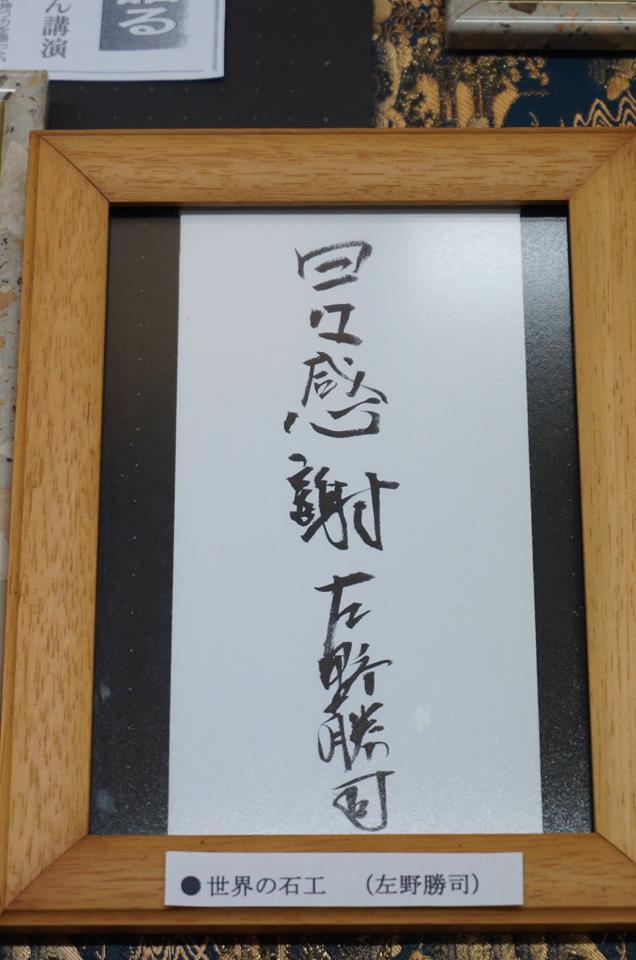 ん講演
語る
日々感謝 左野勝司
●世界の石工 (左野勝司)